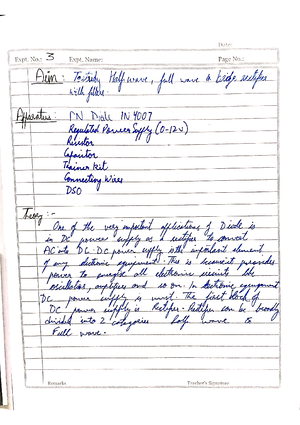 Date:
Expt. No.: 3 Expt. Name: Page No.:
Aim: To study Half wave, full wave & bridge rectifier
with filter.
Apparatus: PN Diode IN4007
Regulated Power Supply (0-12v)
Resistor
Capacitor
Trainer kit
Connecting Wires
DSO
Theory:-
One of the very important applications of Diode is
in DC power supply as a rectifier to convert
AC into DC. DC power supply is the important element
of any electronic equipment. This is because it provides
power to energize all electronic circuits like
oscillators, amplifiers and so on. In electronic equipment
DC power supply is must. The first block of
DC power supply is Rectifier. Rectifier can be broadly
divided into 2 categories half wave &
Full wave.
Remarks Teacher's Signature